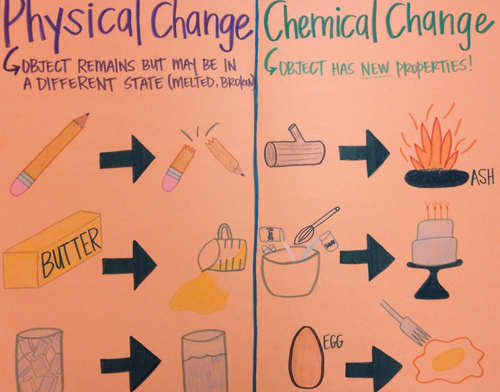 Physical Change
OBJECT REMAINS BUT MAY BE IN
A DIFFERENT STATE (MELTED, BROKEN)
Chemical Change
OBJECT HAS NEW PROPERTIES!
ASH
BUTTER
EGG